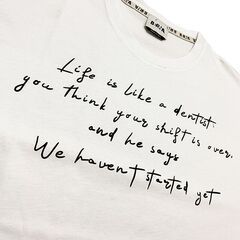 Life is like a dentist.
you think your shift is over.
and he says
We haven't started yet